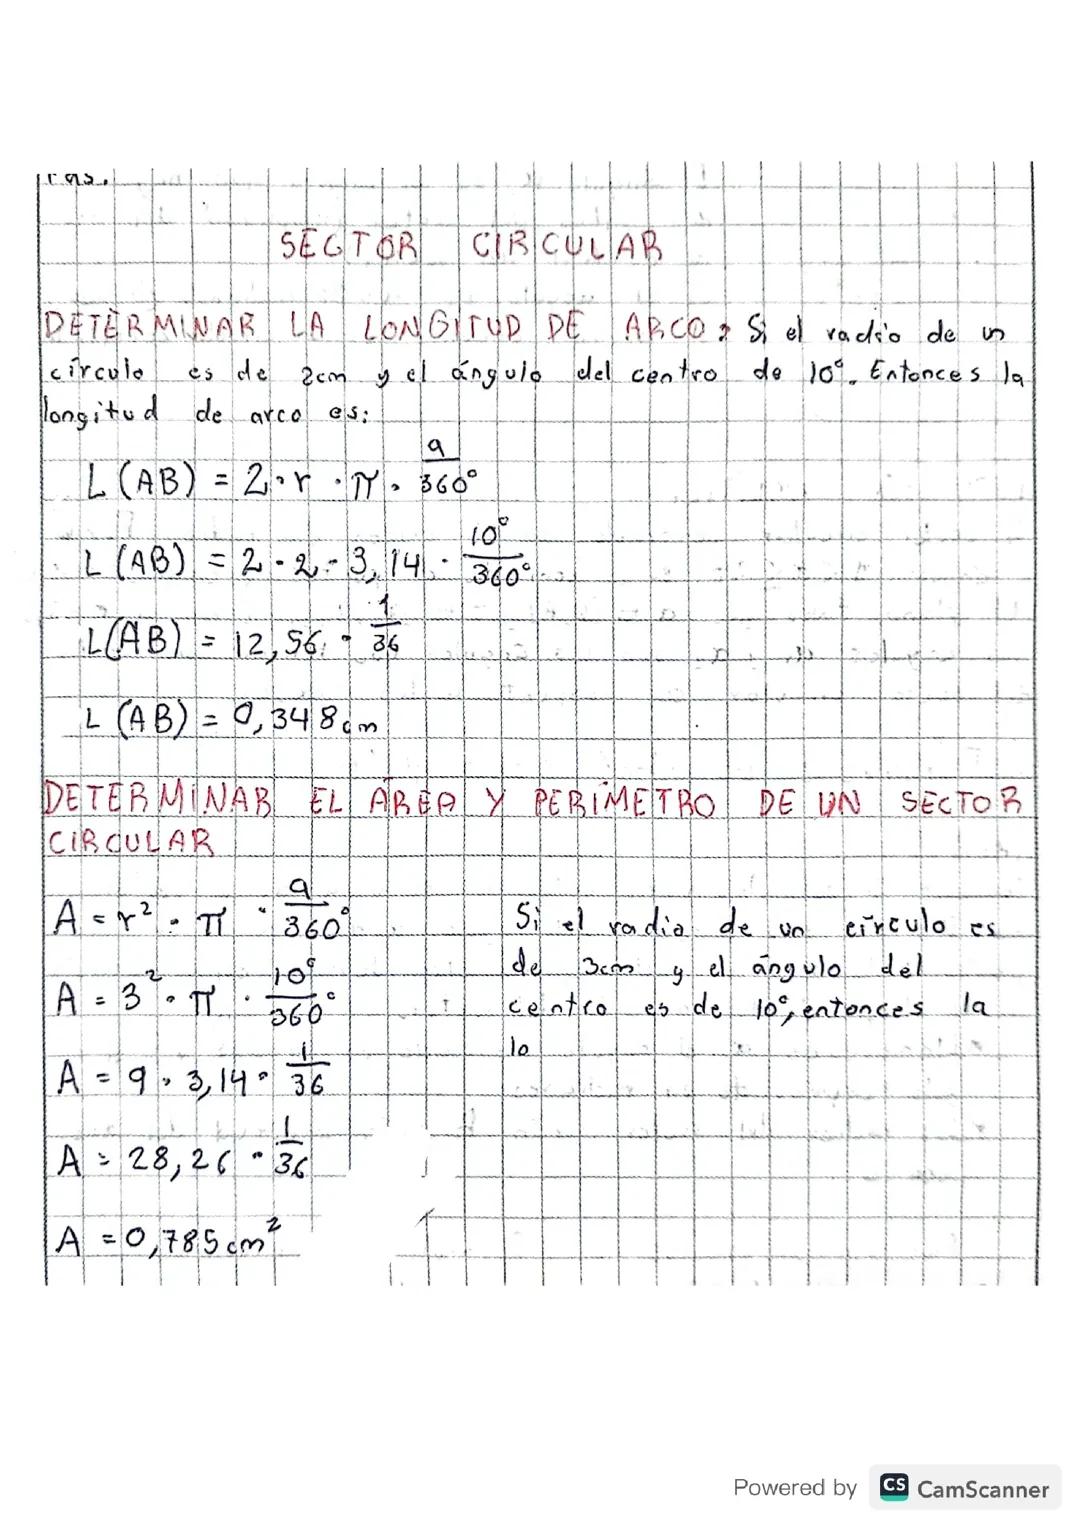 ras.
SECTOR CIRCULAR
DETERMINAR LA LONGITUD DE ARCO: Si el radio de un
círculo es de 2cm y el ángulo del centro de 10°. Entonces la
longitud de arco es:
L (AB) = 2 · r · π · a/360°
L (AB) = 2 · 2 · 3,14 · 10°/360°
L(AB) = 12,56 · 1/36
L (AB) = 0,348cm
DETERMINAR EL ÁREA Y PERÍMETRO DE UN SECTOR
CIRCULAR
A = r² · π · a/360°
A = 3² · π · 10°/360°
A = 9 · 3,14 · 1/36
A = 28,26 · 1/36
A = 0,785cm²
Si el radio de un círculo es
de 3cm y el ángulo del
centro es de 10°, entonces la
lo
Powered by CS CamScanner